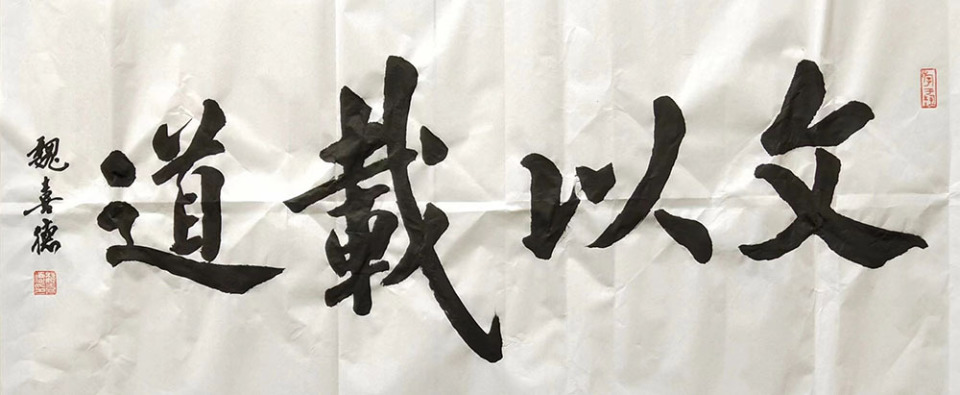 文以載道
魏喜德